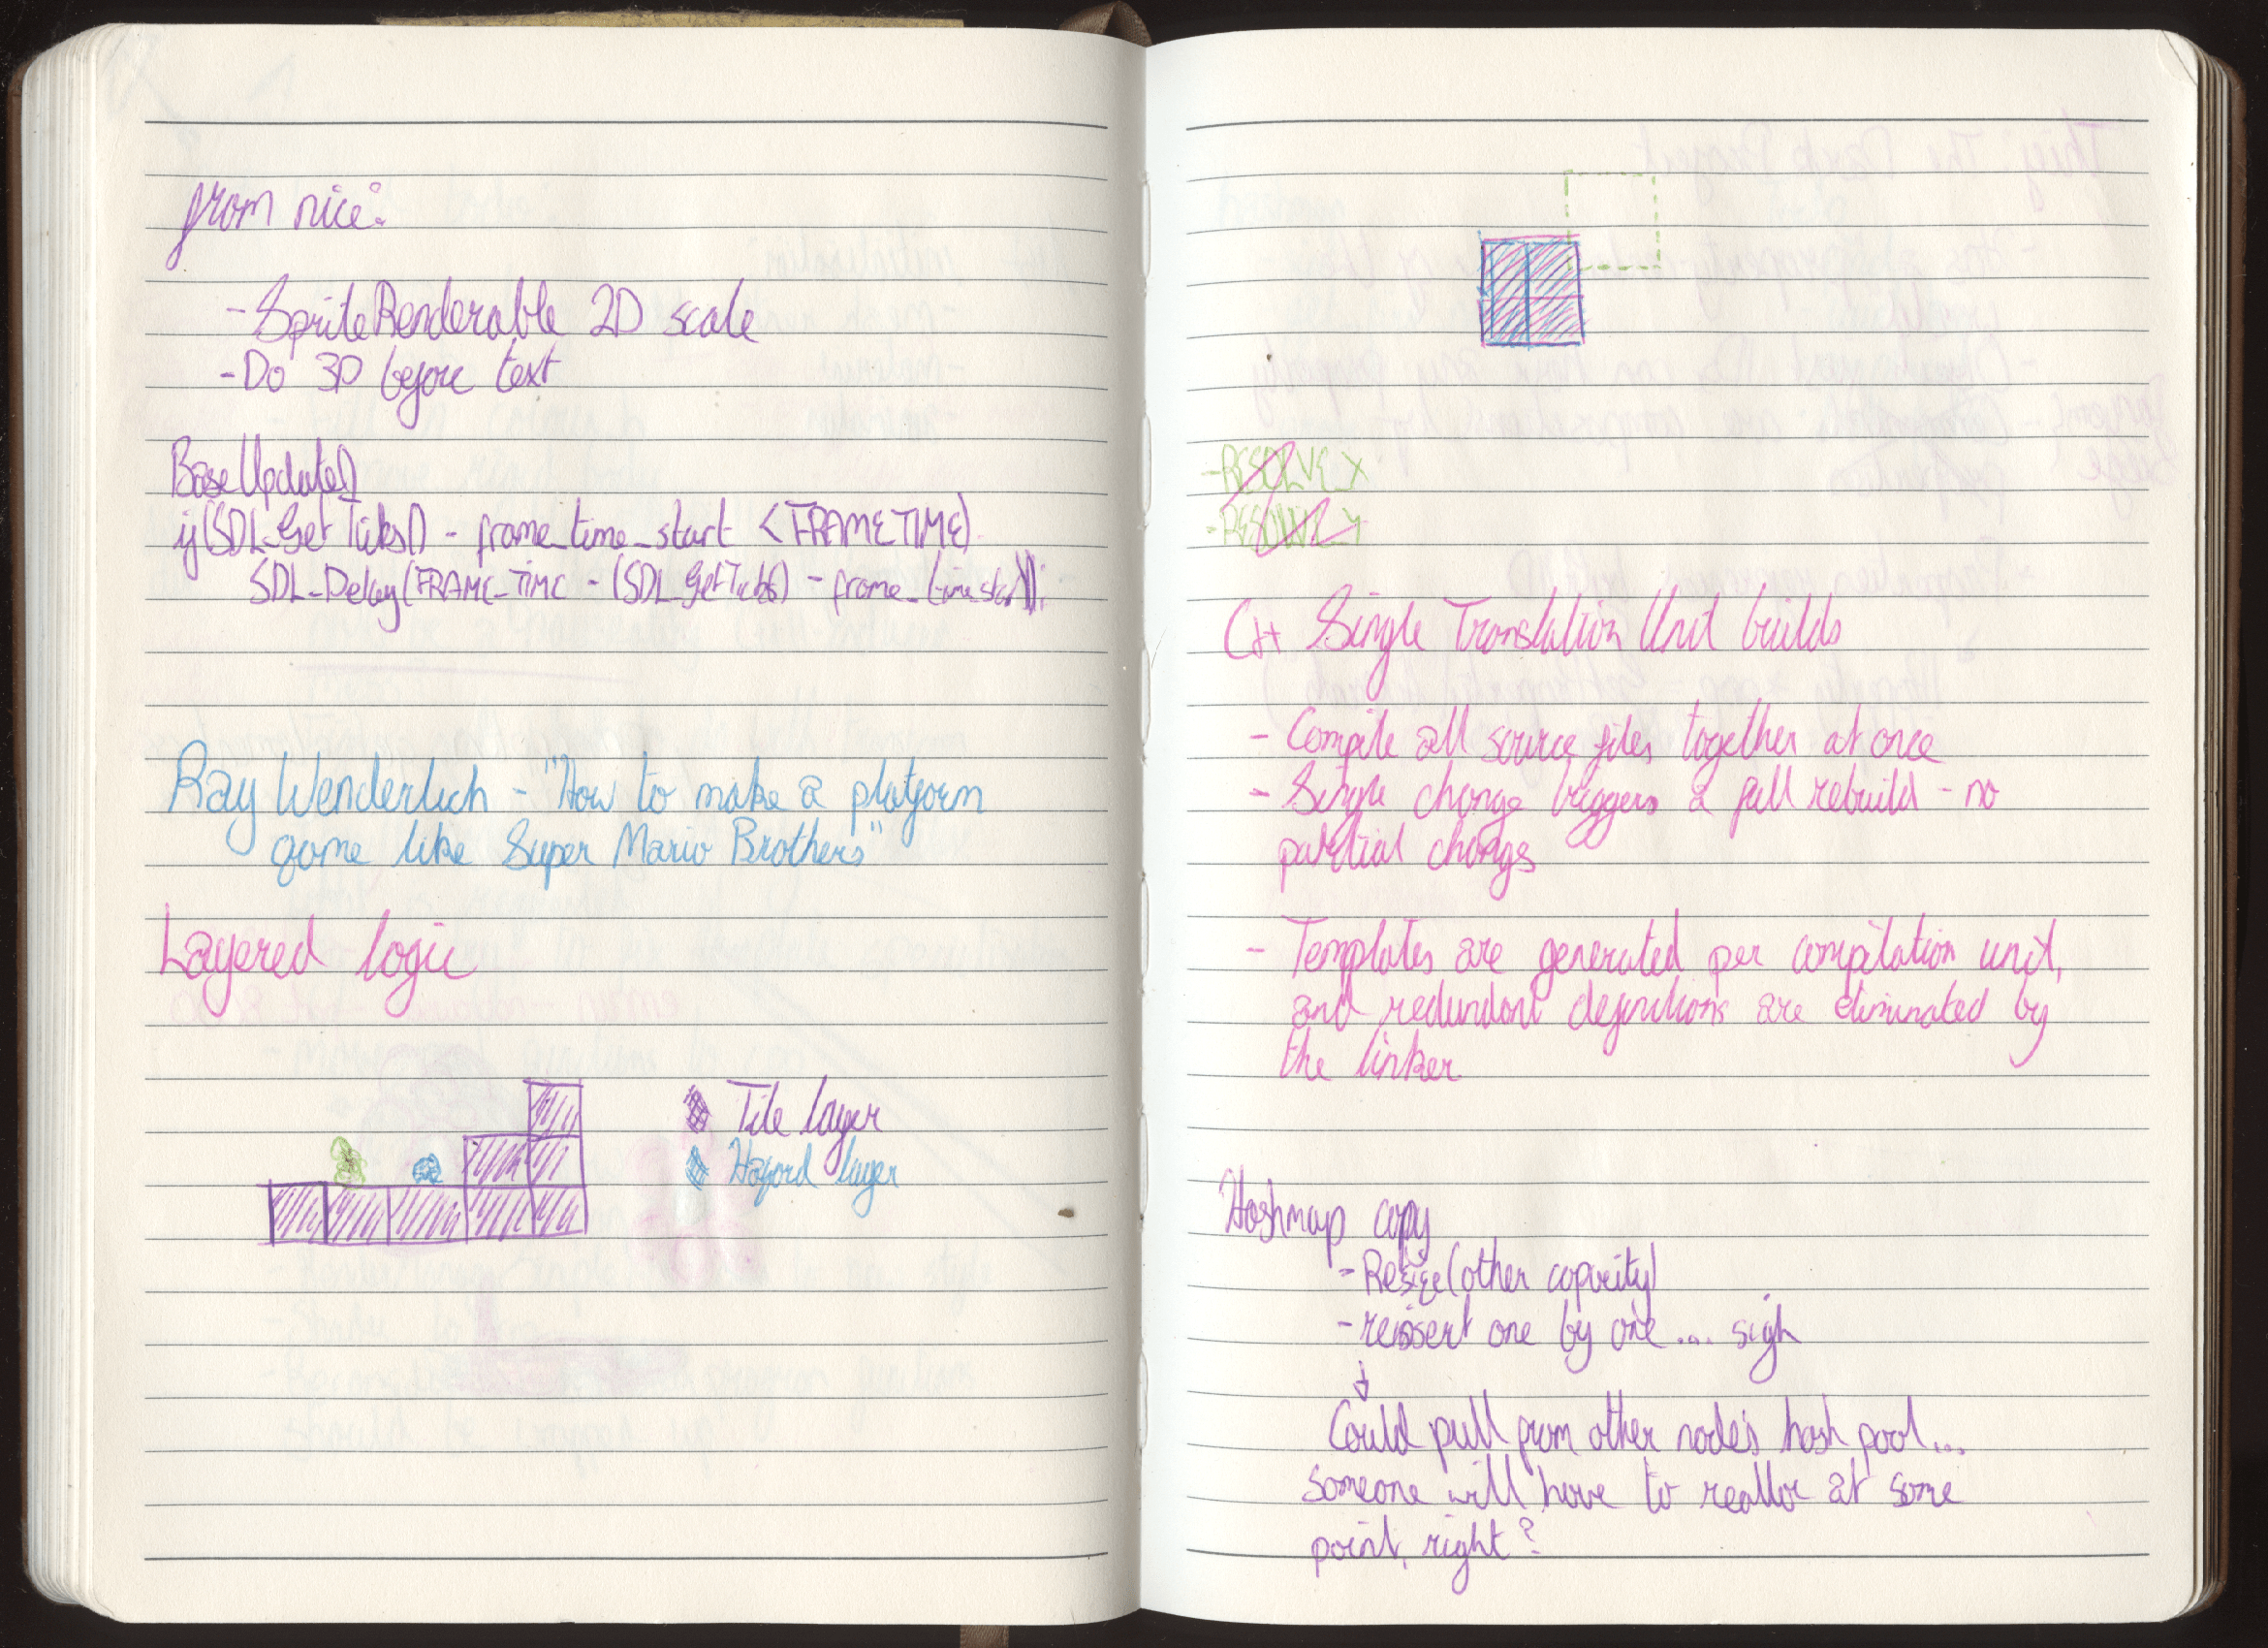 from nice:
- SpriteRenderable 2D scale
- Do 3D before text
BaseUpdate()
if(SDL_GetTicks() - frame_time_start < FRAMETIME)
SDL_Delay(FRAME_TIME - (SDL_GetTicks() - frame_time_start));
Ray Wenderlich - "How to make a platform
game like Super Mario Brothers"
Layered logic
Tile layer
Hazard layer
- RESOLVE_X
- RESOLVE_Y
C++ Single Translation Unit builds
- Compile all source files together at once
- Single change triggers a full rebuild - no
partial changes
- Templates are generated per compilation unit,
and redundant definitions are eliminated by
the linker
Hashmap copy
- Resize(other capacity)
- reinsert one by one ... sigh
Could pull from other node's hash pool...
someone will have to realloc at some
point, right?